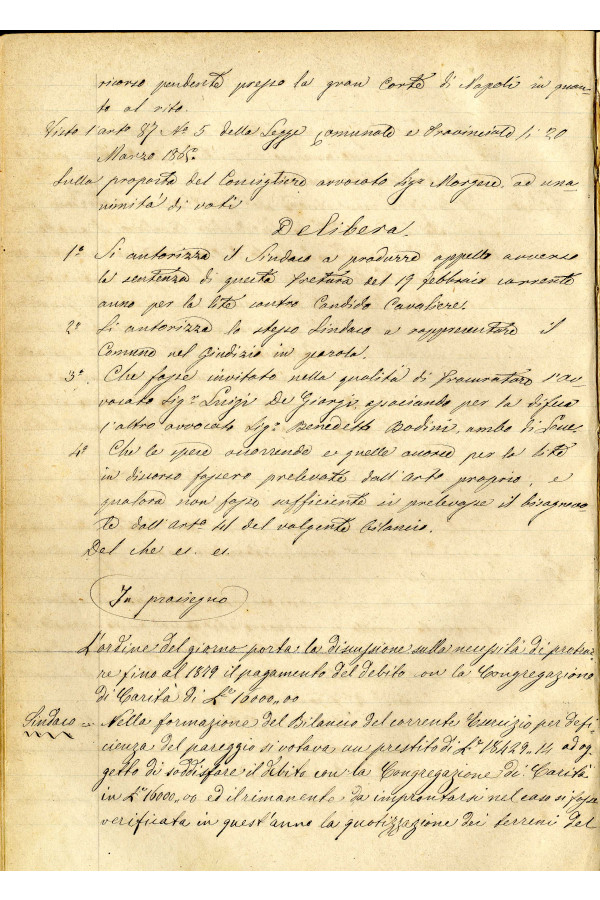 ricorso pendente presso la gran Corte di Napoli in quan-
to al rito.
Visto l'arto 87 No 5 della Legge Comunale e Provinciale li 20
Marzo 1865.
Sulla proposta del Consigliere avvocato Sigr Morgese, ad una-
nimità di voti
Delibera.
1o Si autorizza il Sindaco a produrre appello avverso
la sentenza di questa Pretura del 19 febbraio corrente
anno per la lite contro Candida Cavaliere.
2o Si autorizza lo stesso Sindaco a rappresentare il
Comune nel Giudizio in parola.
3o Che fosse invitato nella qualità di Procuratore l'av-
vocato Sigr Luigi De Giorgi, associando per la difesa
l'altro avvocato Sigr Benedetto Bodini, ambo di
4o Che le spese occorrende e quelle occorse per la lite
in discorso fossero prelevate dall'Arto proprio, e
qualora non fosse sufficiente si prelevasse il bisognevo-
le dall'Arto del volgente bilancio.
Del che es. es.
In prosieguo
L'ordine del giorno porta la discussione sulla necessità di protrar-
re fino al 1879 il pagamento del debito con la Congregazione
di Carità di Le 16000,00
Sindaco = Nella formazione del Bilancio del corrente Esercizio per defi-
cienza del pareggio si votava un prestito di Le 18429,14 ad og-
getto di soddisfare il debito con la Congregazione di Carità
in Le 16000,00 ed il rimanente da improntarsi nel caso si fosse
verificata in quest'anno la quotizzazione dei terreni del